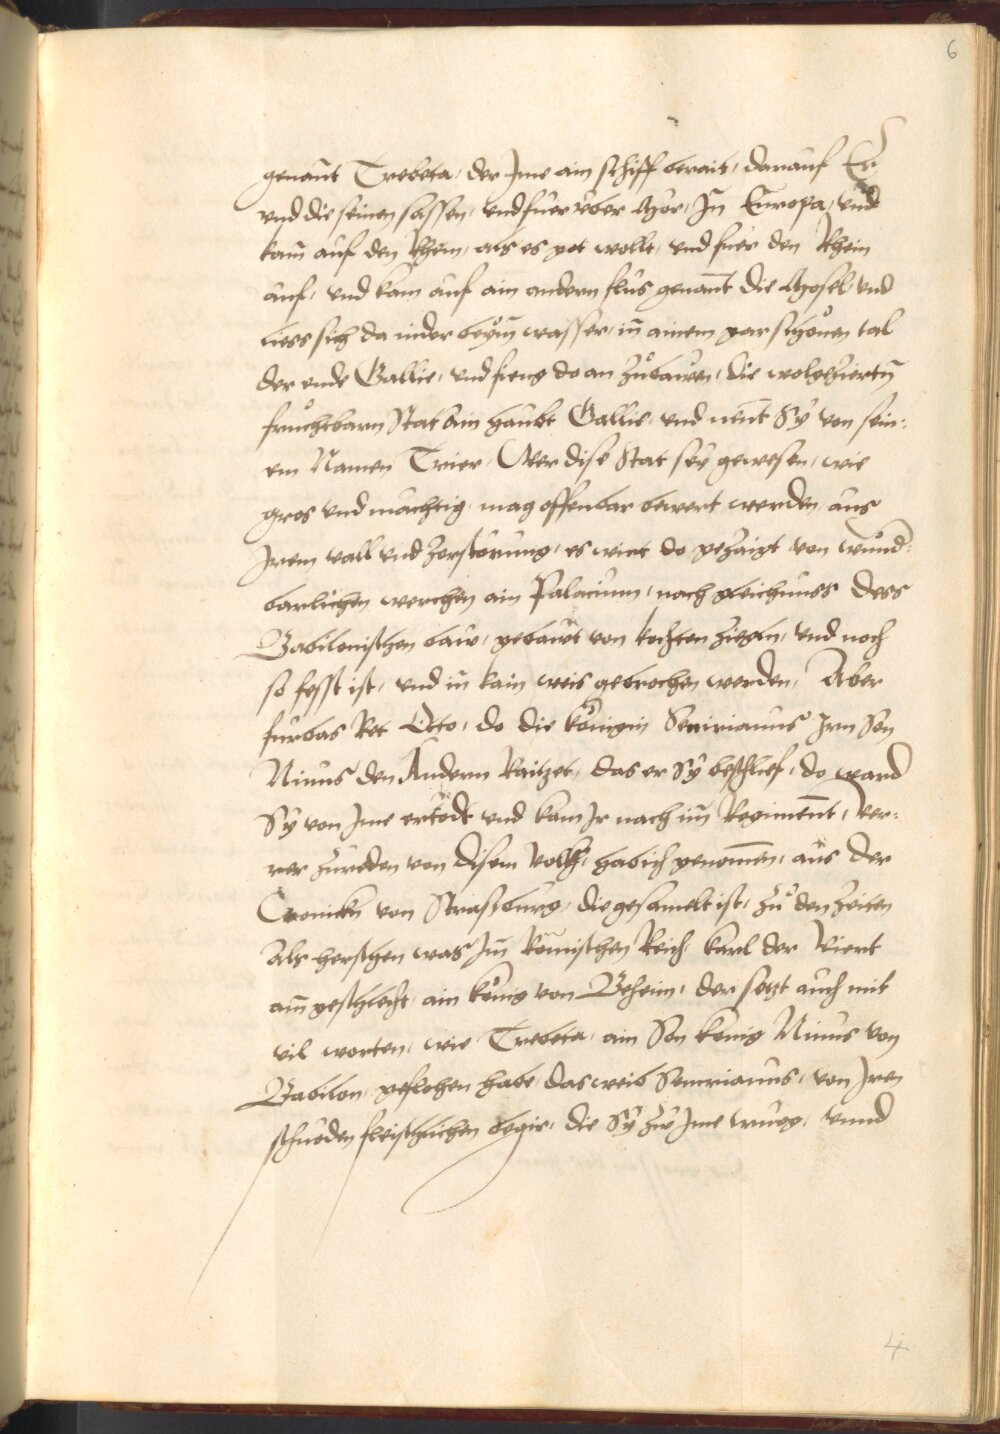 6
genant Trebeta, der Jme ain schiff berait, darauf Er
vnd die seinen sassen, vnd fuer vber Mör, Jn Europa, vnd
kam auf den Rhein, als es got wollt, vnd fuer den Rhein
auf, vnd kam auf ain andern flus genant die Mosel, vnd
liess sich da nider beÿm wasser, in ainem gar schönen tal
der ende Gallie, vnd fieng do an zůbawen, die wolgeziertn̄
fruchtbarn Stat ain haubt Gallie, vnd nent Sÿ von sein:
em Namen Trier, Wer dise Stat seÿ gewesen, wie
gros vnd mächtig, mag offenbar bewert werden, aus
Jrem vall vnd zerstörung, es wirt do gezaigt von wund:
barlichen werchen ain Palacium, nach gleichnuss dess
Babilonischen baw, gebawt von kochten ziegln, vnd noch
so fesst ist, vnd in kain weis gebrochen werden, Aber
furbas Ret Otto, do die königin Semiramis Jrn Son
Ninus den Andern Raitzet, das er Sÿ beschlief, do ward
Sÿ von Jme ertödt vnd kam Jr nach im Regiment, Ver:
rer zureden von disem volkh, hab ich genomen, aus der
Cronickn von Straßburg, die gesamelt ist, zů den zeiten
Als herschen was Jm Römischen Reich Karl der Viert
am geschlecht, ain könig von Beheim, der setzt auch mit
vil worten, wie Trebeta, ain Son konig Ninus von
Babilon, geflohen habe, das weib Semiramis, von Jren
schnöden fleischlichen begir, die Sÿ zw Jme trueg, vnnd
4